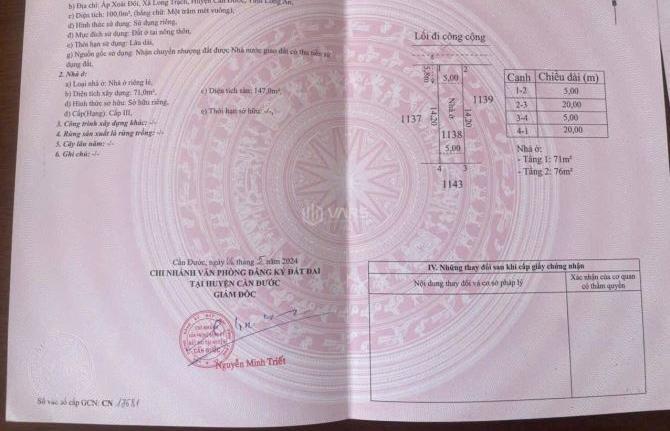 b) Địa chỉ: Ấp Xoài Đôi, Xã Long Trạch, Huyện Cần Đước, Tỉnh Long An,
c) Diện tích: 100,0m², (bằng chữ: Một trăm mét vuông),
d) Hình thức sử dụng: Sử dụng riêng,
đ) Mục đích sử dụng: Đất ở tại nông thôn,
e) Thời hạn sử dụng: Lâu dài,
g) Nguồn gốc sử dụng: Nhận chuyển nhượng đất được Nhà nước giao đất có thu tiền sử
dụng đất.
2. Nhà ở:
a) Loại nhà ở: Nhà ở riêng lẻ,
b) Diện tích xây dựng: 71,0m², c) Diện tích sàn: 147,0m²,
d) Hình thức sở hữu: Sở hữu riêng,
đ) Cấp(Hạng): Cấp III, e) Thời hạn sở hữu: -/-,
3. Công trình xây dựng khác: -/-
4. Rừng sản xuất là rừng trồng: -/-
5. Cây lâu năm: -/-
6. Ghi chú: -/-
VARS
Cần Đước, ngày tháng 5 năm 2024
CHI NHÁNH VĂN PHÒNG ĐĂNG KÝ ĐẤT ĐAI
TẠI HUYỆN CẦN ĐƯỚC
GIÁM ĐỐC
CẦN ĐƯỚC
Nguyễn Minh Triết
Số vào sổ cấp GCN: CN
Lối đi công cộng
1 2
5,80
5,00
1137
14,20
Nhà ở
14,20
1139
1138
5,00
4 3
1143
Cạnh Chiều dài (m)
1-2 5,00
2-3 20,00
3-4 5,00
4-1 20,00
Nhà ở:
- Tầng 1: 71m²
- Tầng 2: 76m²
IV. Những thay đổi sau khi cấp giấy chứng nhận
Nội dung thay đổi và cơ sở pháp lý
Xác nhận của cơ quan
có thẩm quyền